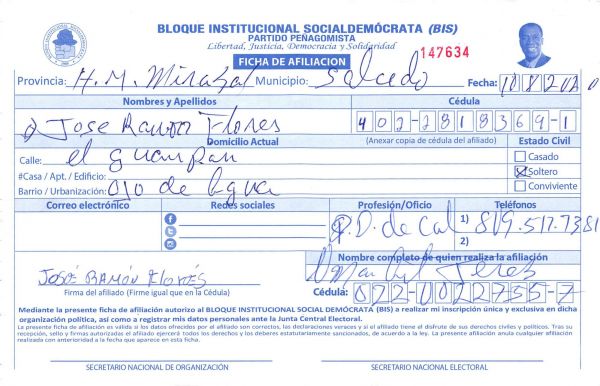 BLOQUE INSTITUCIONAL SOCIALDEMÓCRATA (BIS)
PARTIDO PEÑAGOMISTA
Libertad, Justicia, Democracia y Solidaridad
147634
FICHA DE AFILIACION
Provincia: H.M. Mirabal Municipio: Salcedo Fecha: 10 8 2020
Nombres y Apellidos Cédula
Jose Ramon Flores 402-2818369-1
Domicilio Actual (Anexar copia de cédula del afiliado) Estado Civil
Calle: el guampan Casado
#Casa / Apt. / Edificio: Soltero
Barrio / Urbanización: ojo de Agua Conviviente
Correo electrónico Redes sociales Profesión/Oficio Teléfonos
P.D. de Cal 1) 819.517.7381
2)
Nombre completo de quien realiza la afiliación
JOSÉ RAMÓN FLORES
Firma del afiliado (Firme igual que en la Cédula) Cédula: 072-0022755-7
Mediante la presente ficha de afiliación autorizo al BLOQUE INSTITUCIONAL SOCIAL DEMÓCRATA (BIS) a realizar mi inscripción única y exclusiva en dicha
organización política, así como a registrar mis datos personales ante la Junta Central Electoral.
La presente ficha de afiliación es válida si los datos ofrecidos por el afiliado son correctos, las declaraciones veraces y si el titular tiene el disfrute de sus derechos civiles y políticos. Tras su
recepción, sello y firmas autorizadas el afiliado ejercerá todos los derechos y los deberes estatutariamente sancionados, de acuerdo a la ley. La presente afiliación anula cualquier afiliación
realizada con anterioridad a la fecha que aparece en esta ficha.
SECRETARIO NACIONAL DE ORGANIZACIÓN SECRETARIO NACIONAL ELECTORAL